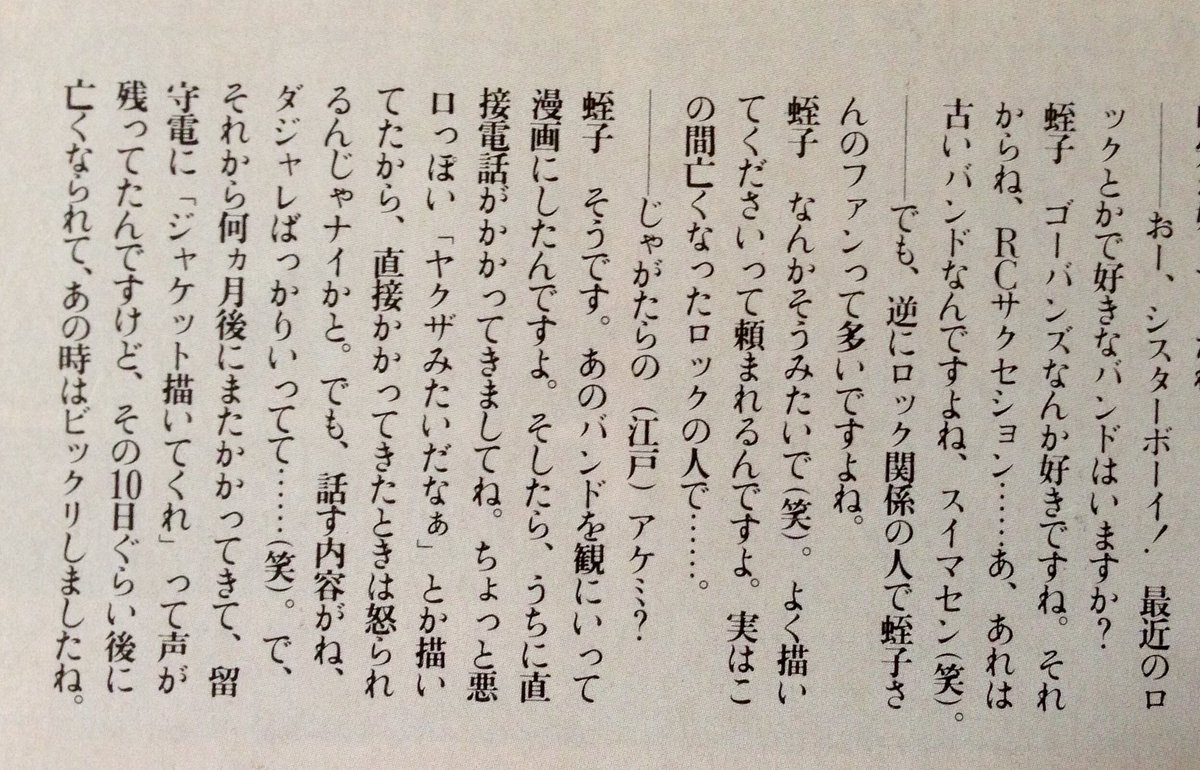 ――おー、シスターボーイ！　最近のロ
ックとかで好きなバンドはいますか？
蛭子　ゴーバンズなんか好きですね。それ
からね、ＲＣサクセション……あ、あれは
古いバンドなんですよね、スイマセン（笑）。
――でも、逆にロック関係の人で蛭子さ
んのファンって多いですよね。
蛭子　なんかそうみたいで（笑）。よく描い
てくださいって頼まれるんですよ。実はこ
の間亡くなったロックの人で……。
――じゃがたらの（江戸）アケミ？
蛭子　そうです。あのバンドを観にいって
漫画にしたんですよ。そしたら、うちに直
接電話がかかってきましてね。ちょっと悪
口っぽい「ヤクザみたいだなぁ」とか描い
てたから、直接かかってきたときは怒られ
るんじゃナイかと。でも、話す内容がね、
ダジャレばっかりいってて……（笑）。で、
それから何ヵ月後にまたかかってきて、留
守電に「ジャケット描いてくれ」って声が
残ってたんですけど、その10日ぐらい後に
亡くなられて、あの時はビックリしましたね。